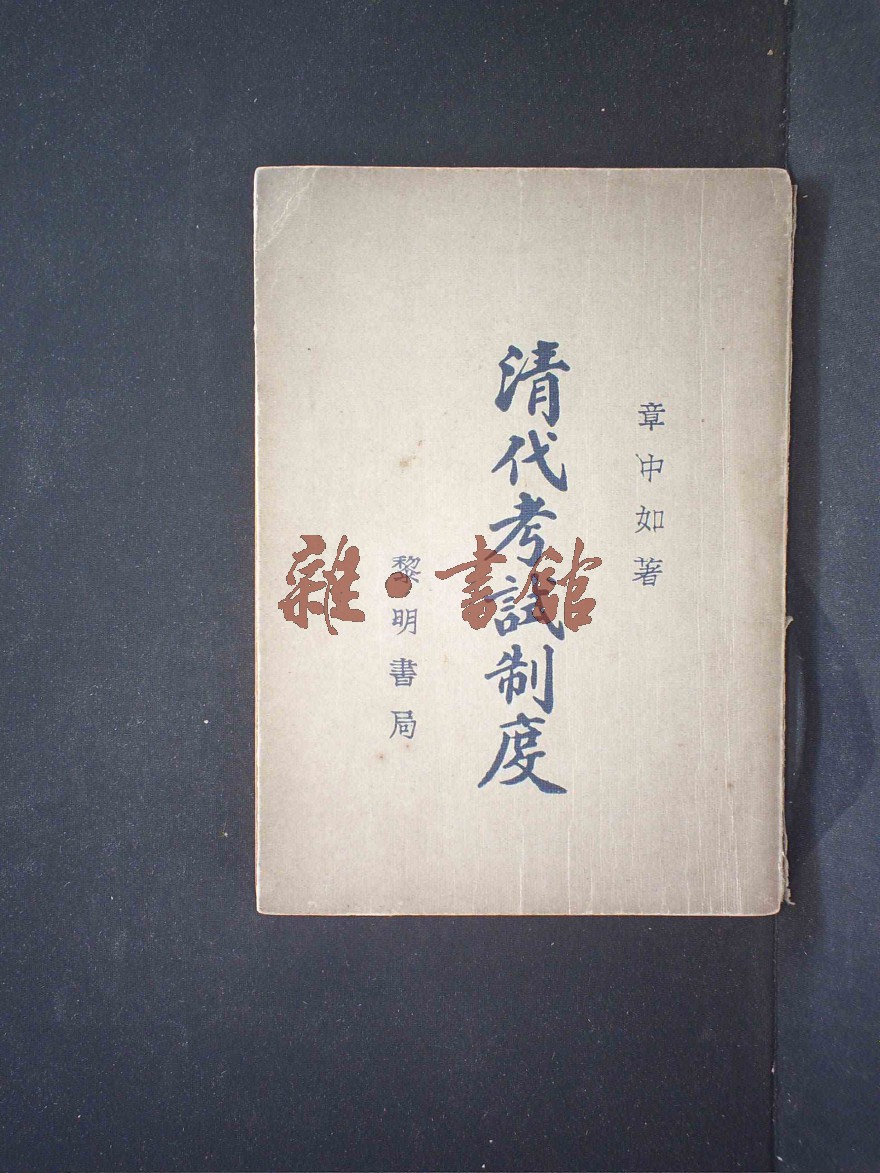 章中如著
清代考試制度
黎明書局
雜·書館